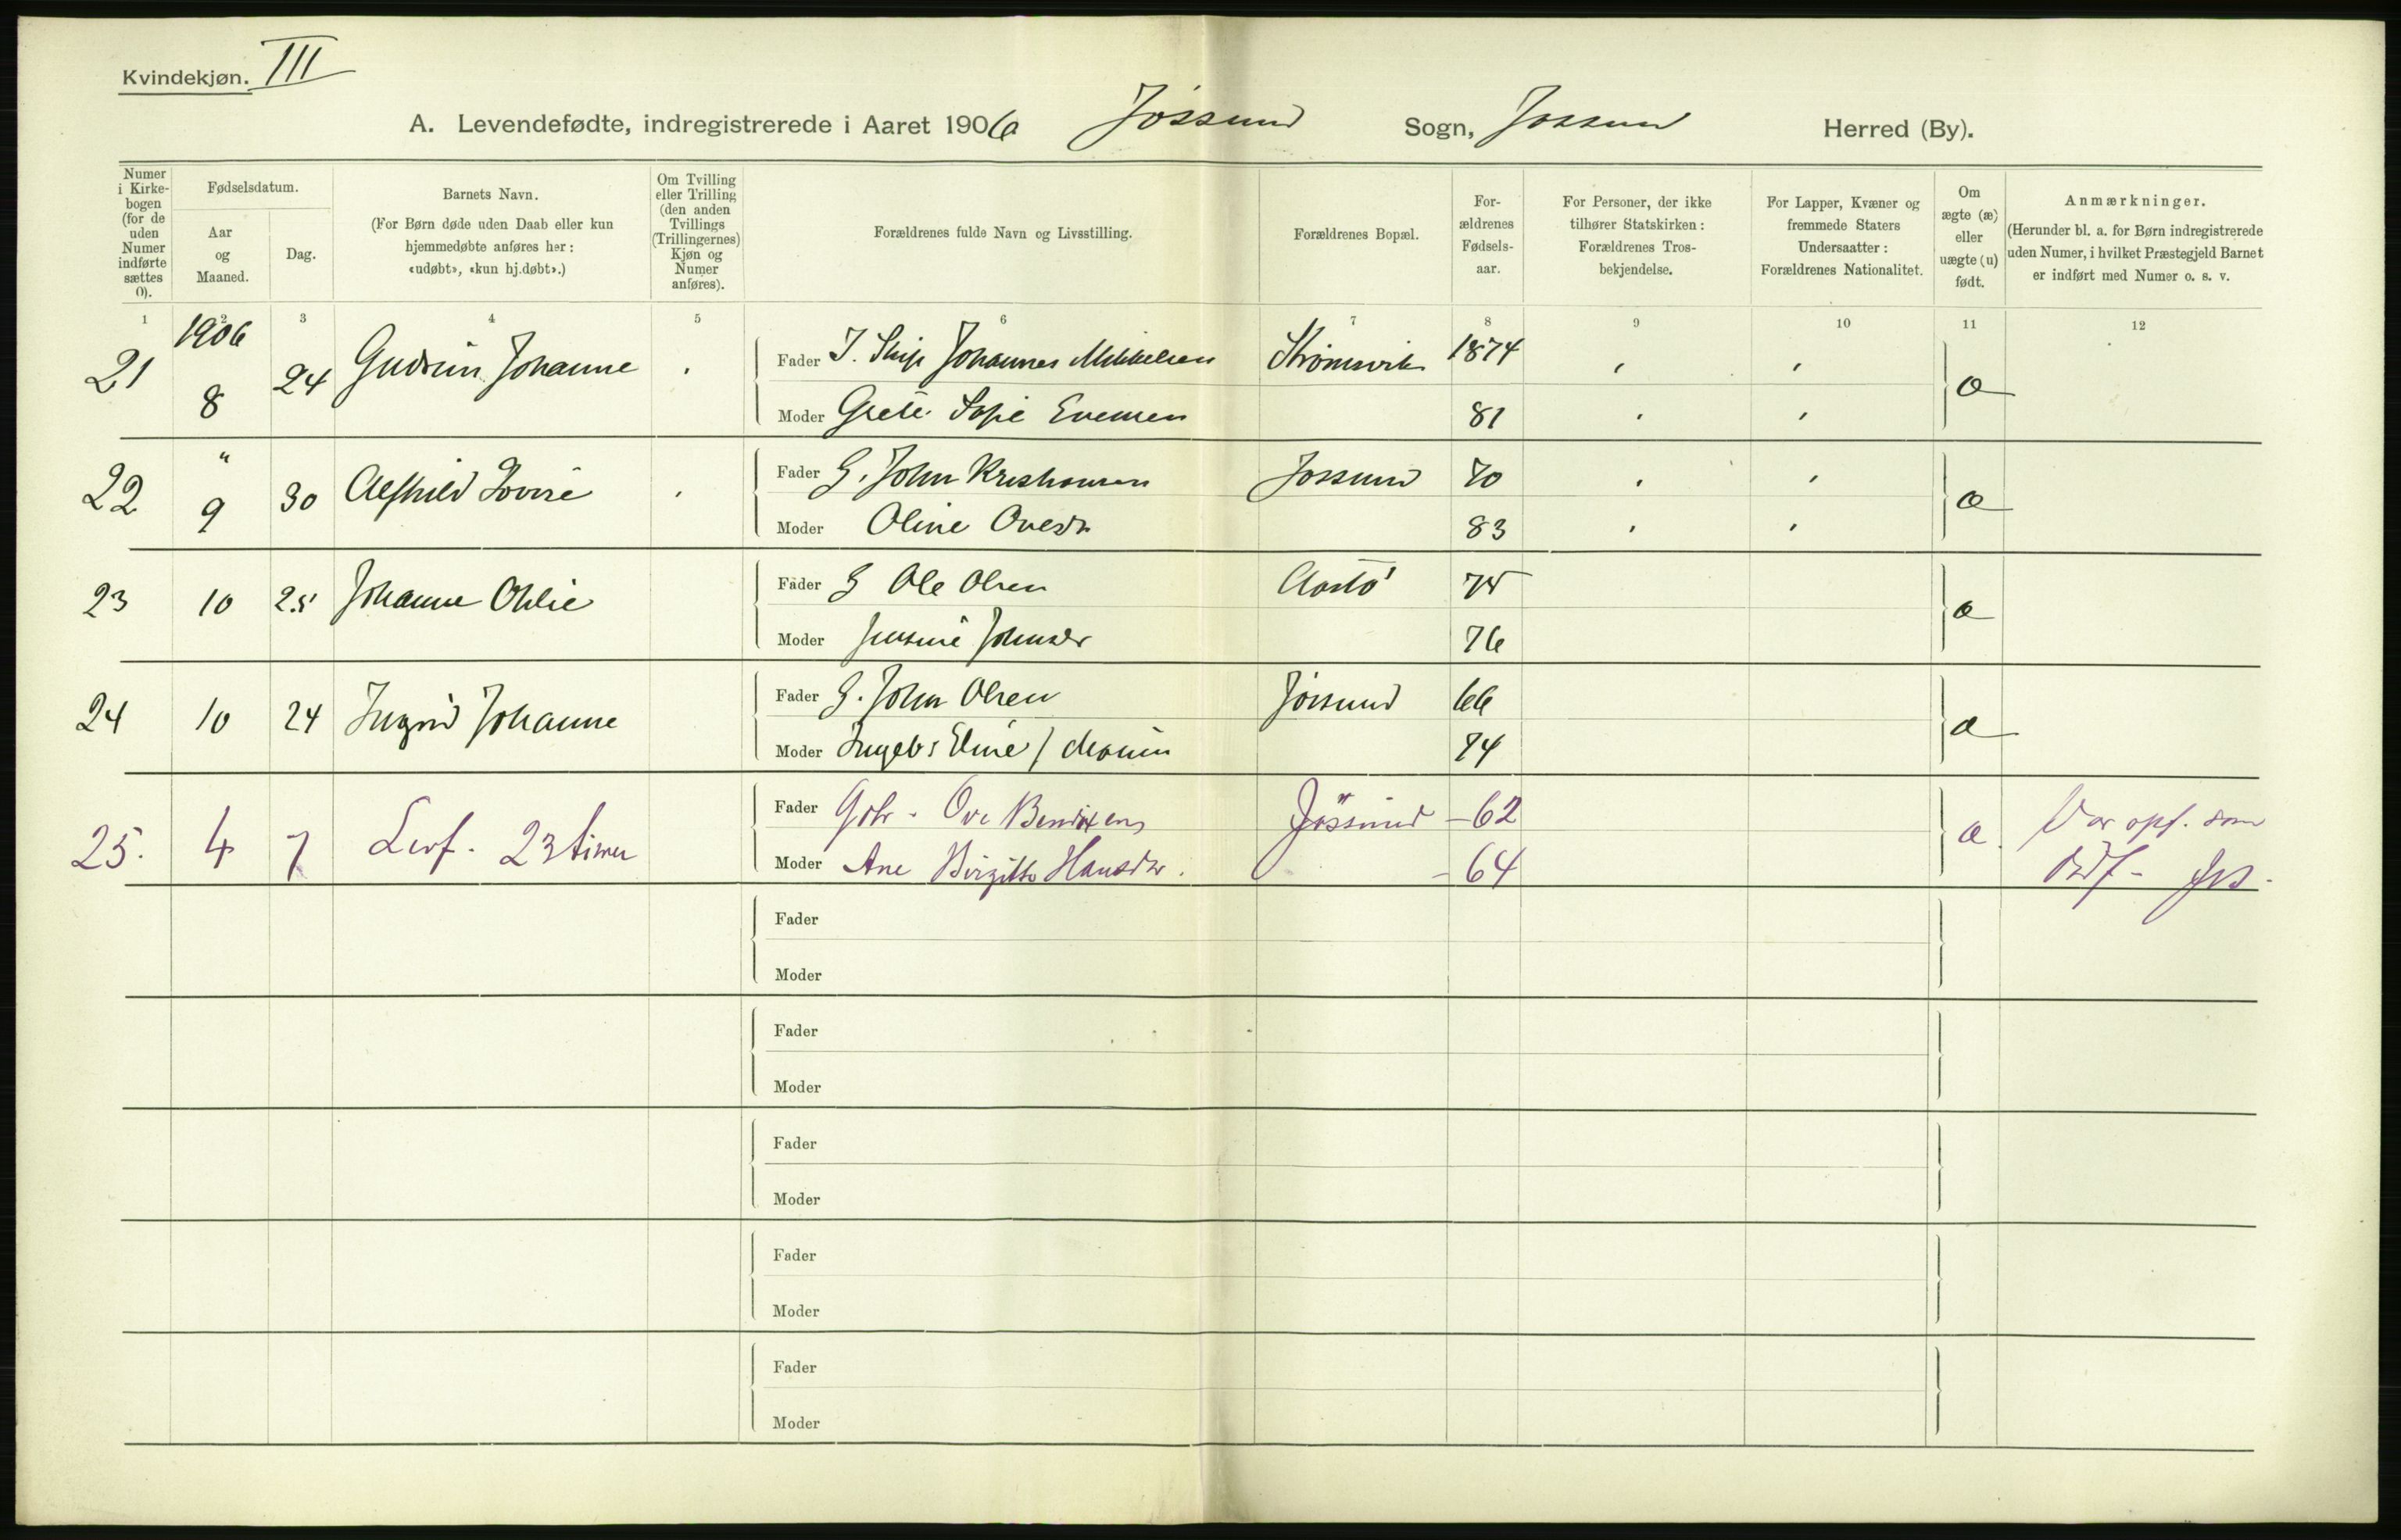 Kvindekjøn. III
A. Levendefødte, indregistrerede i Aaret 1906 Jøssund Sogn, Jøssund Herred (By).
Numer i Kirkebogen (for de uden Numer indførte sættes 0).
Fødselsdatum.
Aar og Maaned.
Dag.
Barnets Navn.
(For Børn døde uden Daab eller kun hjemmedøbte anføres her: «udøbt», «kun hj.døbt».)
Om Tvilling eller Trilling (den anden Tvillings (Trillingernes) Kjøn og Numer anføres).
Forældrenes fulde Navn og Livsstilling.
Forældrenes Bopæl.
Forældrenes Fødselsaar.
For Personer, der ikke tilhører Statskirken: Forældrenes Trosbekjendelse.
For Lapper, Kvæner og fremmede Staters Undersaatter: Forældrenes Nationalitet.
Om ægte (æ) eller uægte (u) født.
Anmærkninger.
(Herunder bl. a. for Børn indregistrerede uden Numer, i hvilket Præstegjeld Barnet er indført med Numer o. s. v.
1 2 3 4 5 6 7 8 9 10 11 12
21 1906 8 24 Gudrun Johanne Fader Johannes Mikkelsen Strømsvik 1874 æ
Moder Grete Sofie Evensen 81
22 " 9 30 Alfhild Lovise Fader G. John Kristiansen Jøssund 70 æ
Moder Oline Ovesdr 83
23 10 25 Johanne Othlie Fader G Ole Olsen 75 æ
Moder Jensine Johnsdr 76
24 10 24 Ingrid Johanne Fader G. John Olsen Jøssund 66 æ
Moder 74
25. 4 7 Levf. 23 timer Fader Gbr. Ove Bendixen Jøssund -62 æ
Moder Ane Birgitte Hansdr. -64
Var opf. som
Fader
Moder
Fader
Moder
Fader
Moder
Fader
Moder
Fader
Moder